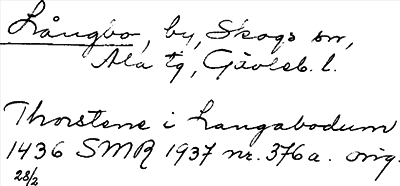 Långbo, by, Skogs sn,
Ala tg, Gävleb. l.
Thorstene i Langabodum
1436 SMR 1937 nr. 376a. orig.
28/2